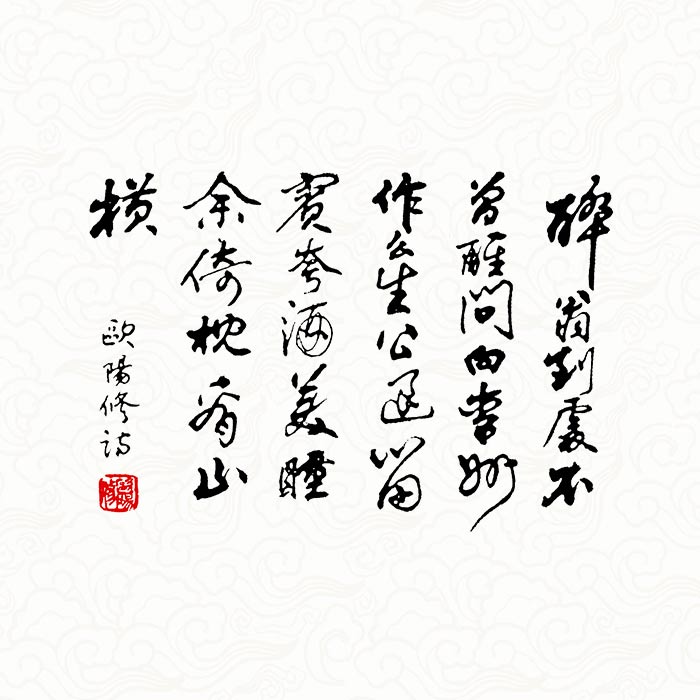 醉翁到處不
曾醒問向青州
作么生公退留
賓夸酒美睡
余倚枕看山
橫
歐陽修詩